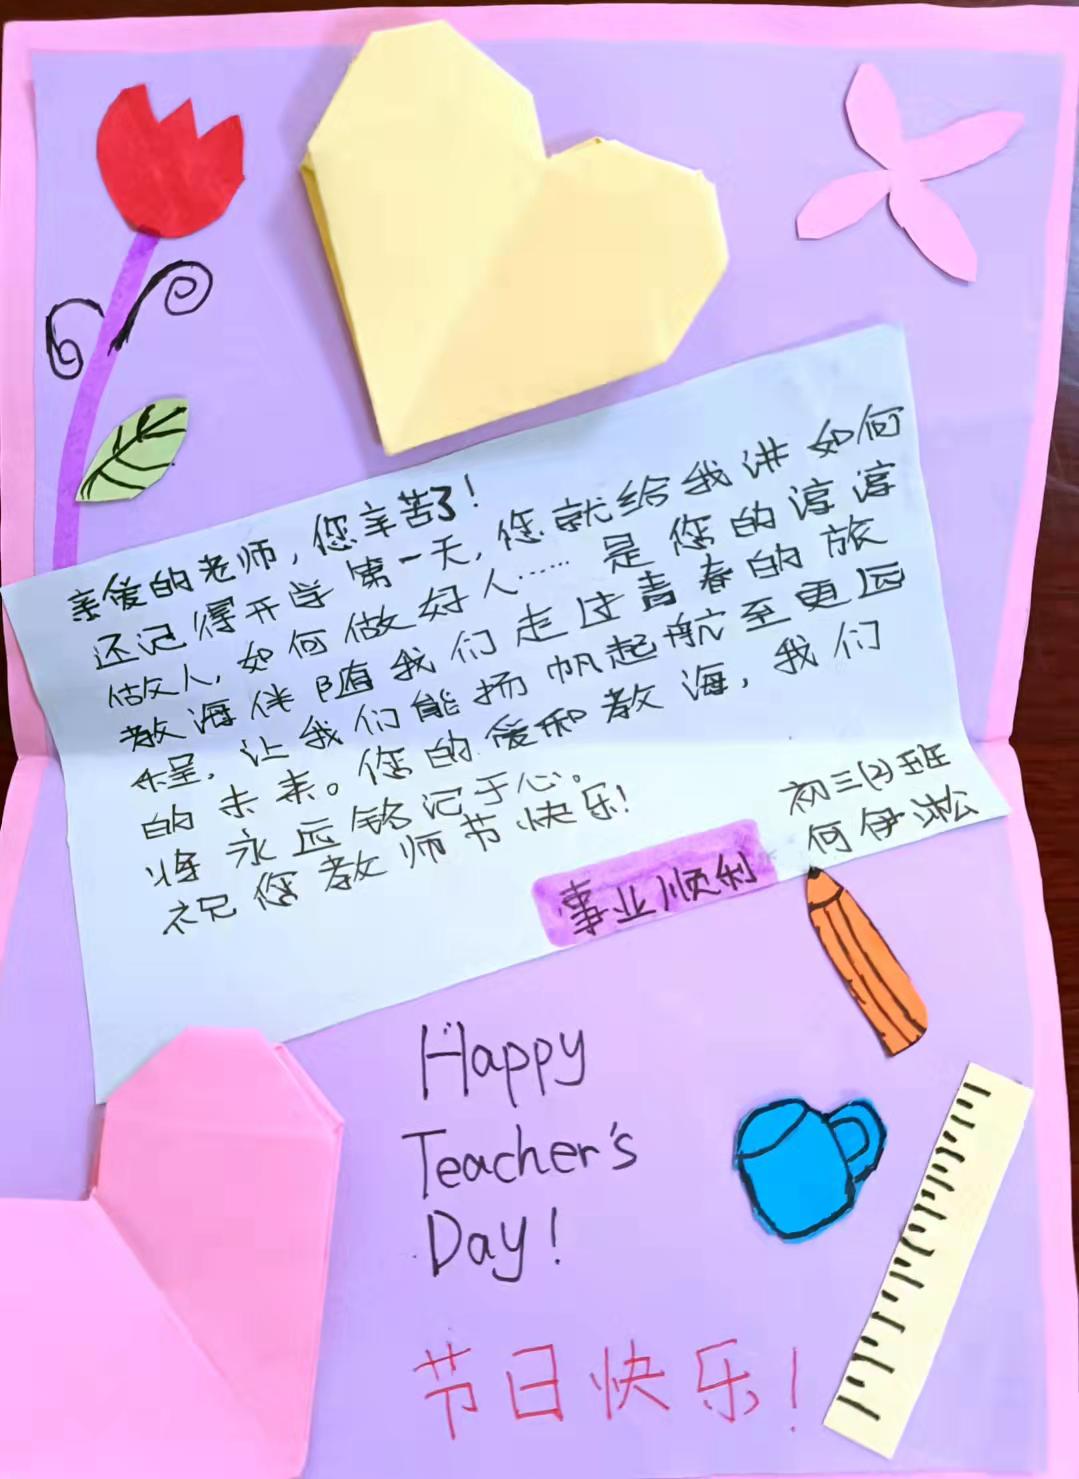 亲爱的老师，您辛苦了！
还记得开学第一天，您就给我讲如何
做人，如何做好人……是您的谆谆
教海伴随我们走过青春的旅
程，让我们能扬帆起航至更远
的未来。您的爱和教海，我们
将永远铭记于心。
祝您教师节快乐！
初三(2)班
何伊淞
事业顺利
Happy
Teacher's
Day!
节日快乐！